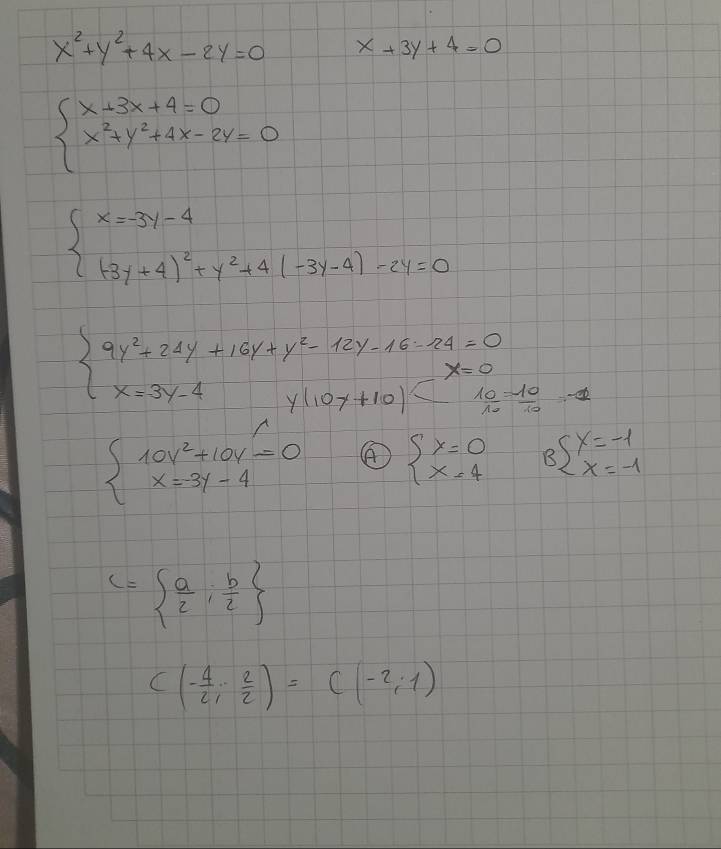 x²+y²+4x-2y=0 x+3y+4=0
x+3x+4=0
x²+y²+4x-2y=0
x=-3y-4
(-3y+4)²+y²+4(-3y-4)-2y=0
9y²+24y+16y+y²-12y-16-24=0
x=0
x=3y-4 y(10y+10) 10/10 = 10/10
10y²+10y=0 A x=0 B x=-1
x=-3y-4 x=4 x=-1
C={a/2 ; b/2}
C(-4/2 ; 2/2) = C(-2;1)